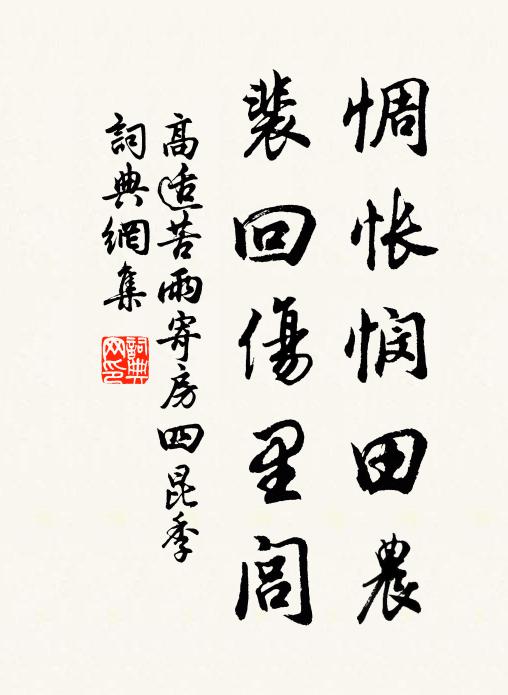 惆悵憫田農
裴回傷里閭
高适苦雨寄房四昆季
詞典網集
詞典網印